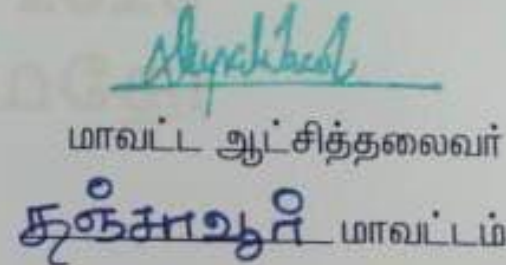 மாவட்ட ஆட்சித்தலைவர்
தஞ்சாவூர் மாவட்டம்